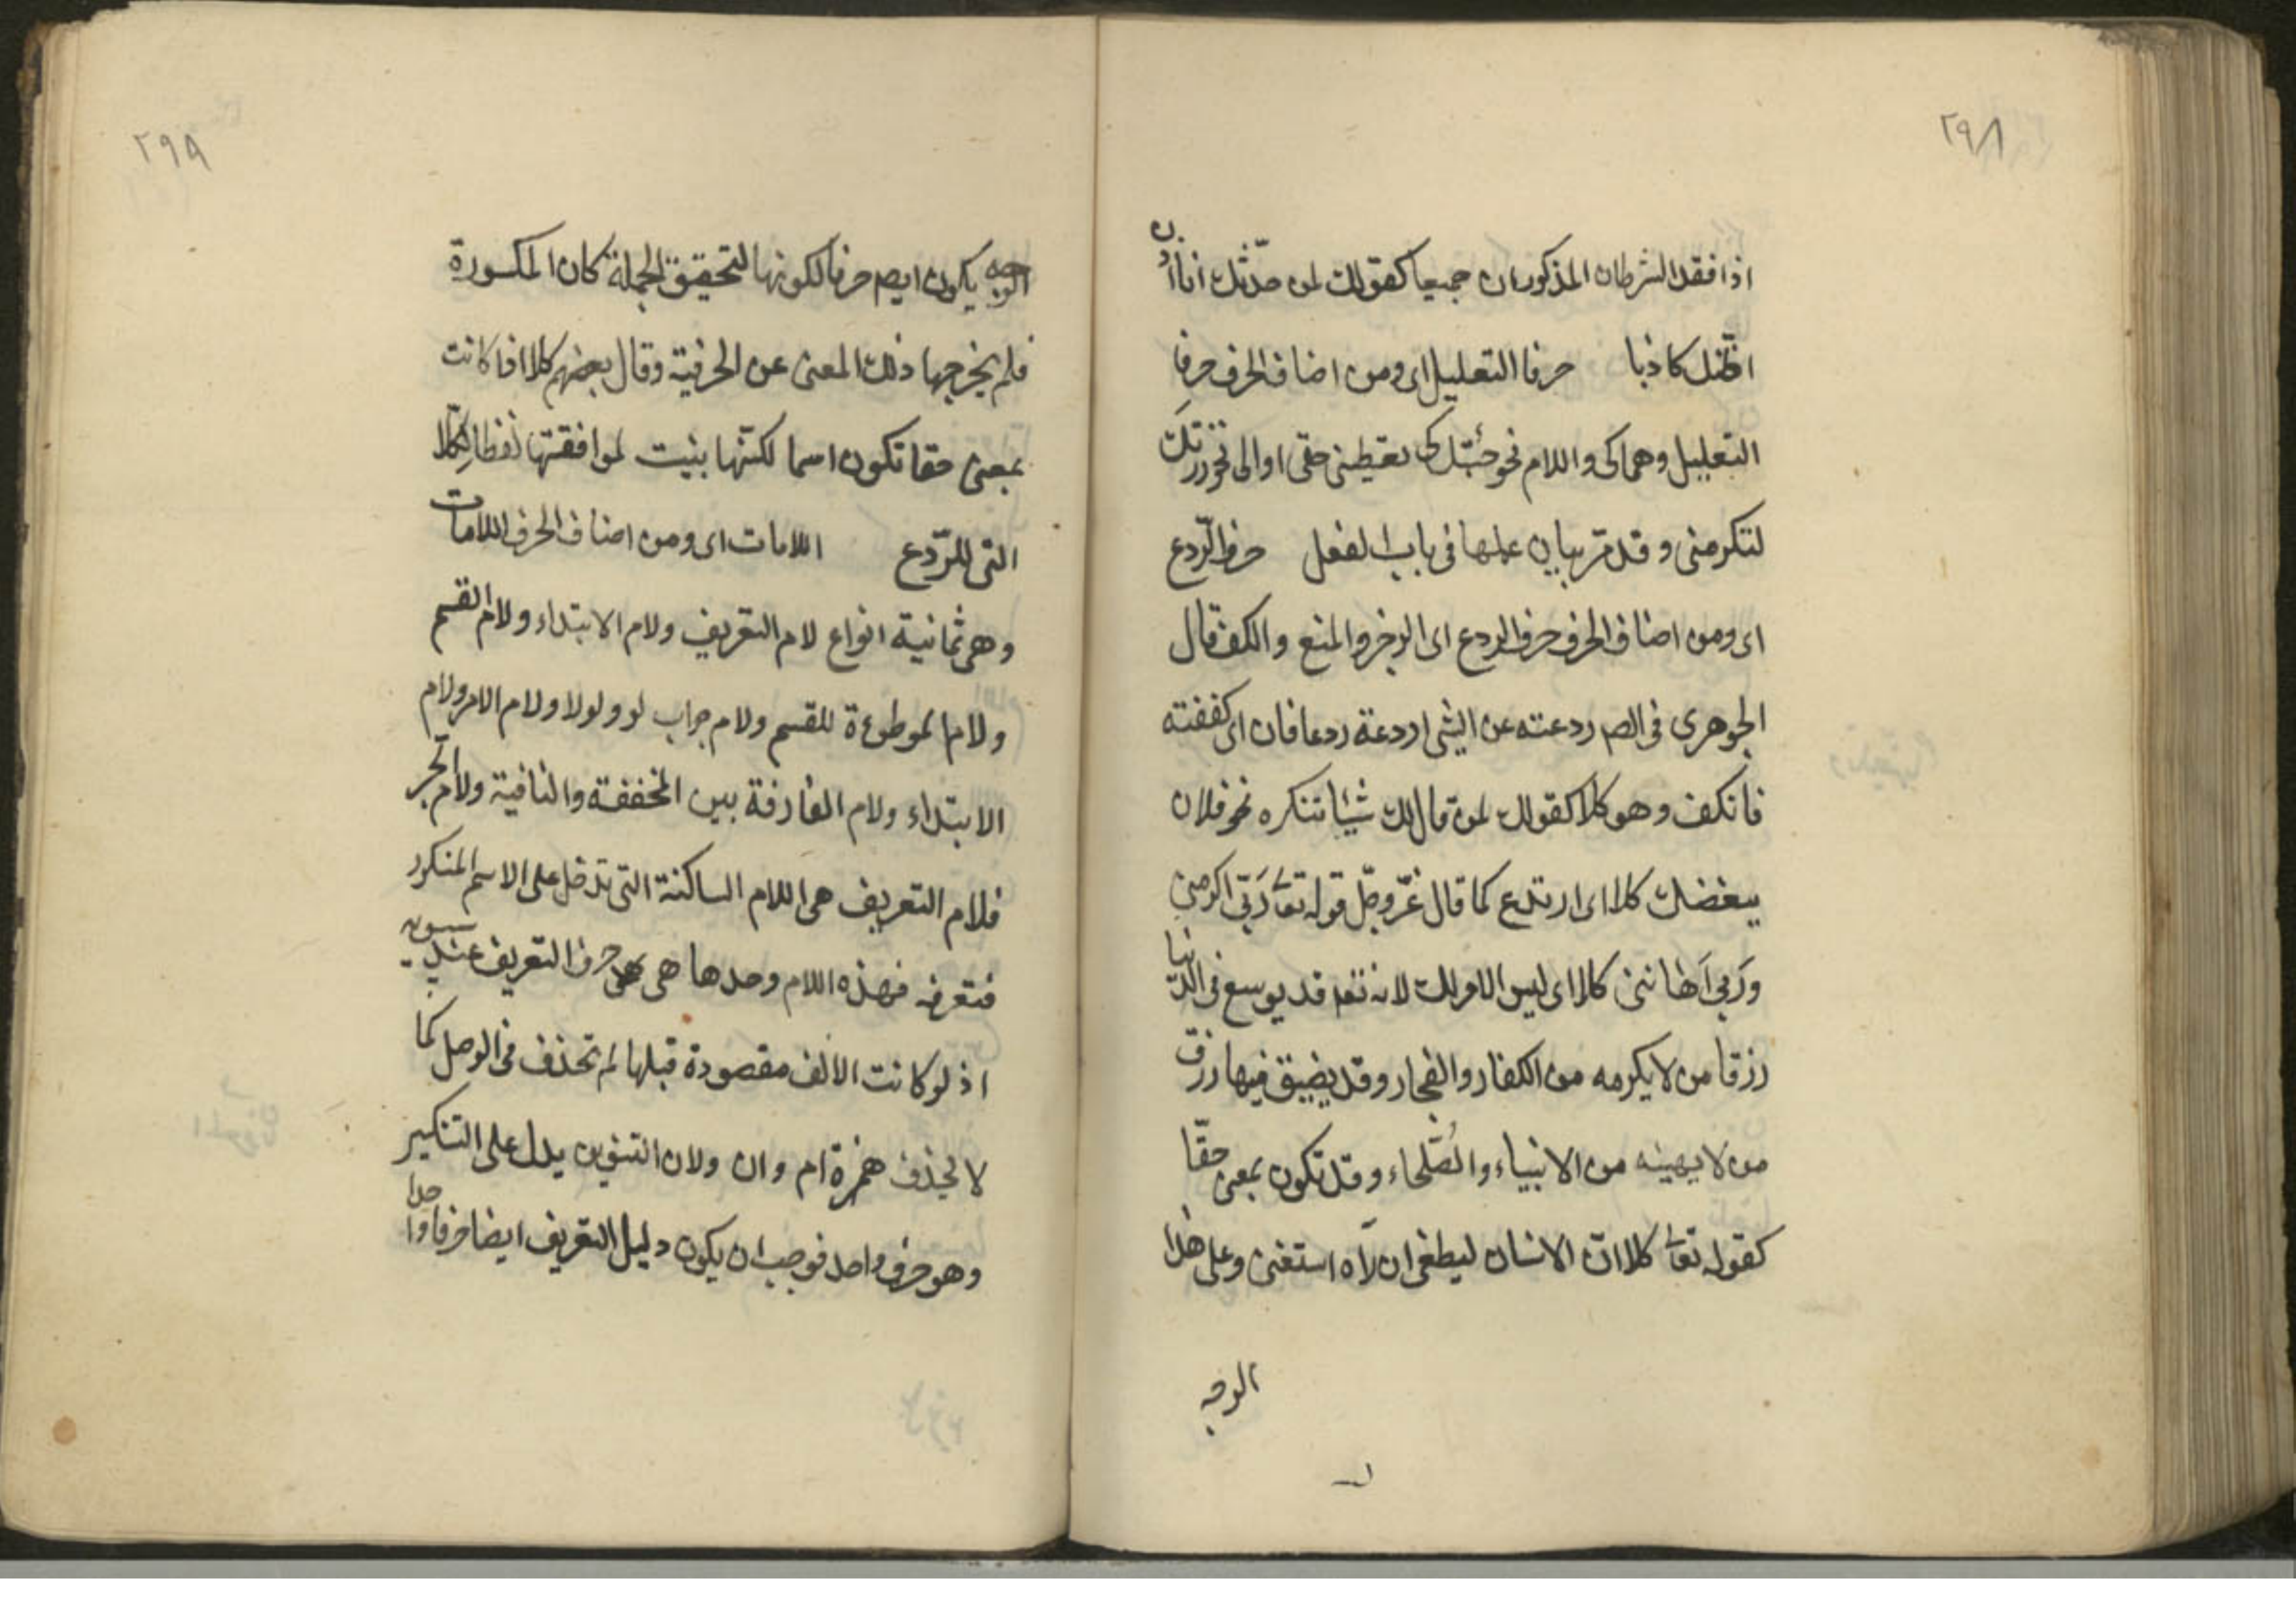 ٢٩٨
اذا فقد الشرطان المذكوران جميعا كقولك لمن حدّثك انا اذن
اظنك كاذبا حرفا التعليل اى ومن اصناف الحرف حرفا
التعليل وهما كى واللام نحو جئتك كى تعطينى حقى او الى نحو زرتك
لتكرمنى وقد مر بيان عملها فى باب الفعل حرف الرّدع
اى ومن اصناف الحرف حرف الردع اى الزجر والمنع والكف قال
الجوهرى فى الصـ ردعته عن الشى اردعة ردعا فان اى كففته
فانكف وهو كلا كقولك لمن قال لك شيئا تنكره نحو فلان
يبغضك كلا اى ارتدع كما قال عزّ وجلّ قوله تعا رَبّى اكرمنِ
ورَبى اَهاننى كلا اى ليس الامر لك لانه تعـ قد يوسع فى الدّنيا
رزقا من لا يكرمه من الكفار والفجار وقد يضيق فيها رزق
من لا يهينه من الانبياء والصّلحاء وقد تكون بمعنى حقّا
كقوله تعا كلا انّ الانسان ليطغى ان رّاه استغنى وعلى هذا
الوجه
٢٩٩
الوجه يكون ايضـ حرفا لكونها لتحقيق الجملة كان المكسورة
فلم يخرجها ذلك المعنى عن الحرفية وقال بعضهم كلا اذا كانت
بمعنى حقا تكون اسما لكنّها بنيت لموافقتها لفظا لِكلّا
التى للرّدع اللامات اى ومن اصناف الحرف اللامات
وهى ثمانية انواع لام التعريف ولام الابتداء ولام القسم
ولام الموطوءة للقسم ولام جواب لو ولولا ولام الامر ولام
الابتداء ولام الفارقة بين المخففة والنافية ولام الجر
فلام التعريف هى اللام الساكنة التى تدخل على الاسم المنكور
فتعرفه فهذه اللام وحدها هى حرف التعريف عند سيبويه
اذ لو كانت الالف مقصودة قبلها لم تحذف فى الوصل كما
لا يحذف همزة ام وان ولان التنوين يدل على التنكير
وهو حرف واحد فوجب ان يكون دليل التعريف ايضا حرفا واحدا